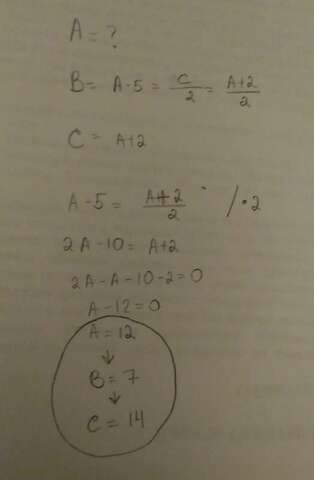 A = ?
B = A - 5 = C/2 = A+2/2
C = A+2
A - 5 = A+2/2 /·2
2A - 10 = A+2
2A - A - 10 - 2 = 0
A - 12 = 0
A = 12
↓
B = 7
↓
C = 14